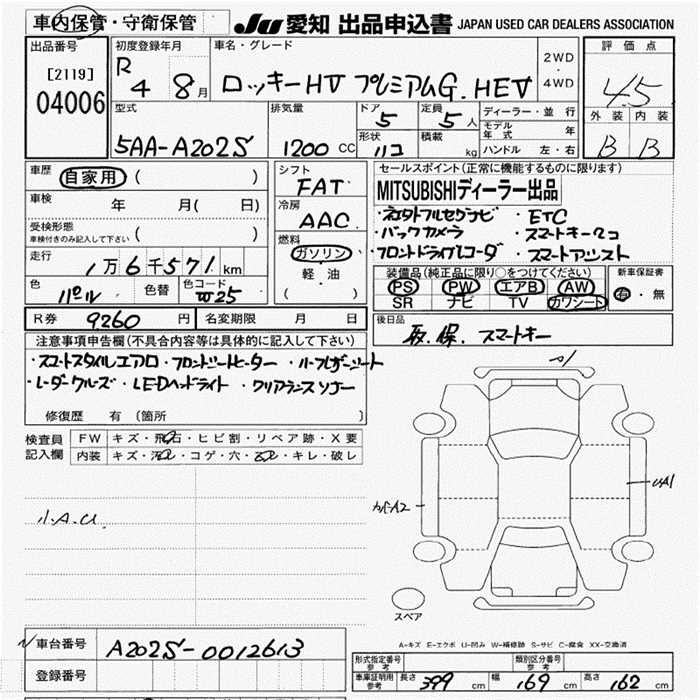 車内保管・守衛保管
JU 愛知 出品申込書 JAPAN USED CAR DEALERS ASSOCIATION
出品番号
[2119]
04006
初度登録年月
R 4 8月
車名・グレード
ロッキーHV プレミアムG.HEV
2WD
・
4WD
評価点
4.5
外装 内装
B B
型式
5AA-A202S
排気量
1200 CC
ドア
5
定員
5人
形状
ハコ
積載
kg
ディーラー・並行
モデル年式 年
ハンドル 左・右
車歴
自家用 ( )
車検 年 月( 日)
受検形態
車検付きのみ記入して下さい ( )
走行
1万6千571km
色
パール
色替
色コード
W25
シフト
FAT
冷房
AAC
燃料
ガソリン
軽・油
( )
セールスポイント(正常に機能するものに限ります)
MITSUBISHIディーラー出品
・ネオタトフルセグナビ ・ETC
・バックカメラ ・スマートキー2コ
・フロントドライブレコーダ ・スマートアシスト
装備品(純正品に限り○をつけてください)
PS PW エアB AW
SR ナビ TV カワシート
新車保証書
有・無
R券 9260円
名変期限 月 日
後日品
取.保. スマートキー
注意事項申告欄(不具合内容等は具体的に記入して下さい)
・スマートスタイルエアロ・フロントシートヒーター・ハーフレザーシート
・レーダークルーズ・LEDヘッドライト・クリアランスソナー
修復歴 有 (箇所 )
検査員記入欄
FW キズ・飛石・ヒビ割・リペア跡・X要
内装 キズ・汚レ・コゲ・穴・スレ・キレ・破レ
小.A.U
A1
カバA2
UA1
スペア
A-キズ E-エクボ U-凹み W-補修跡 S-サビ C-腐食 XX-交換済
車台番号
A202S-0012613
登録番号
形式指定番号
参考
類別区分番号
参考
車庫証明用
参考
長さ 399 cm 幅 169 cm 高さ 162 cm